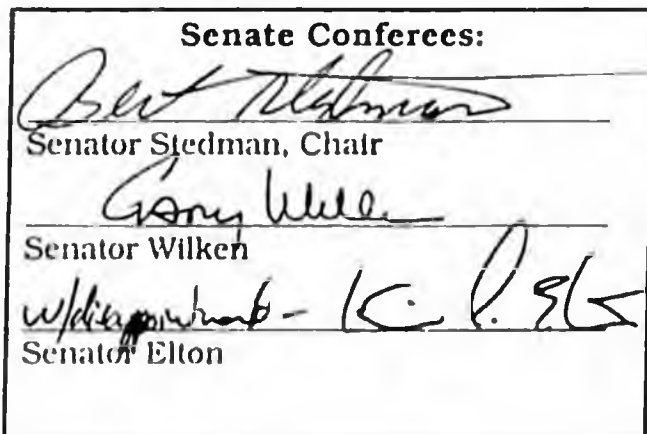 Senate Conferees:
Bert Stedman
Senator Stedman, Chair
Gary Wilken
Senator Wilken
w/disappointment - Kim S. Elton
Senator Elton